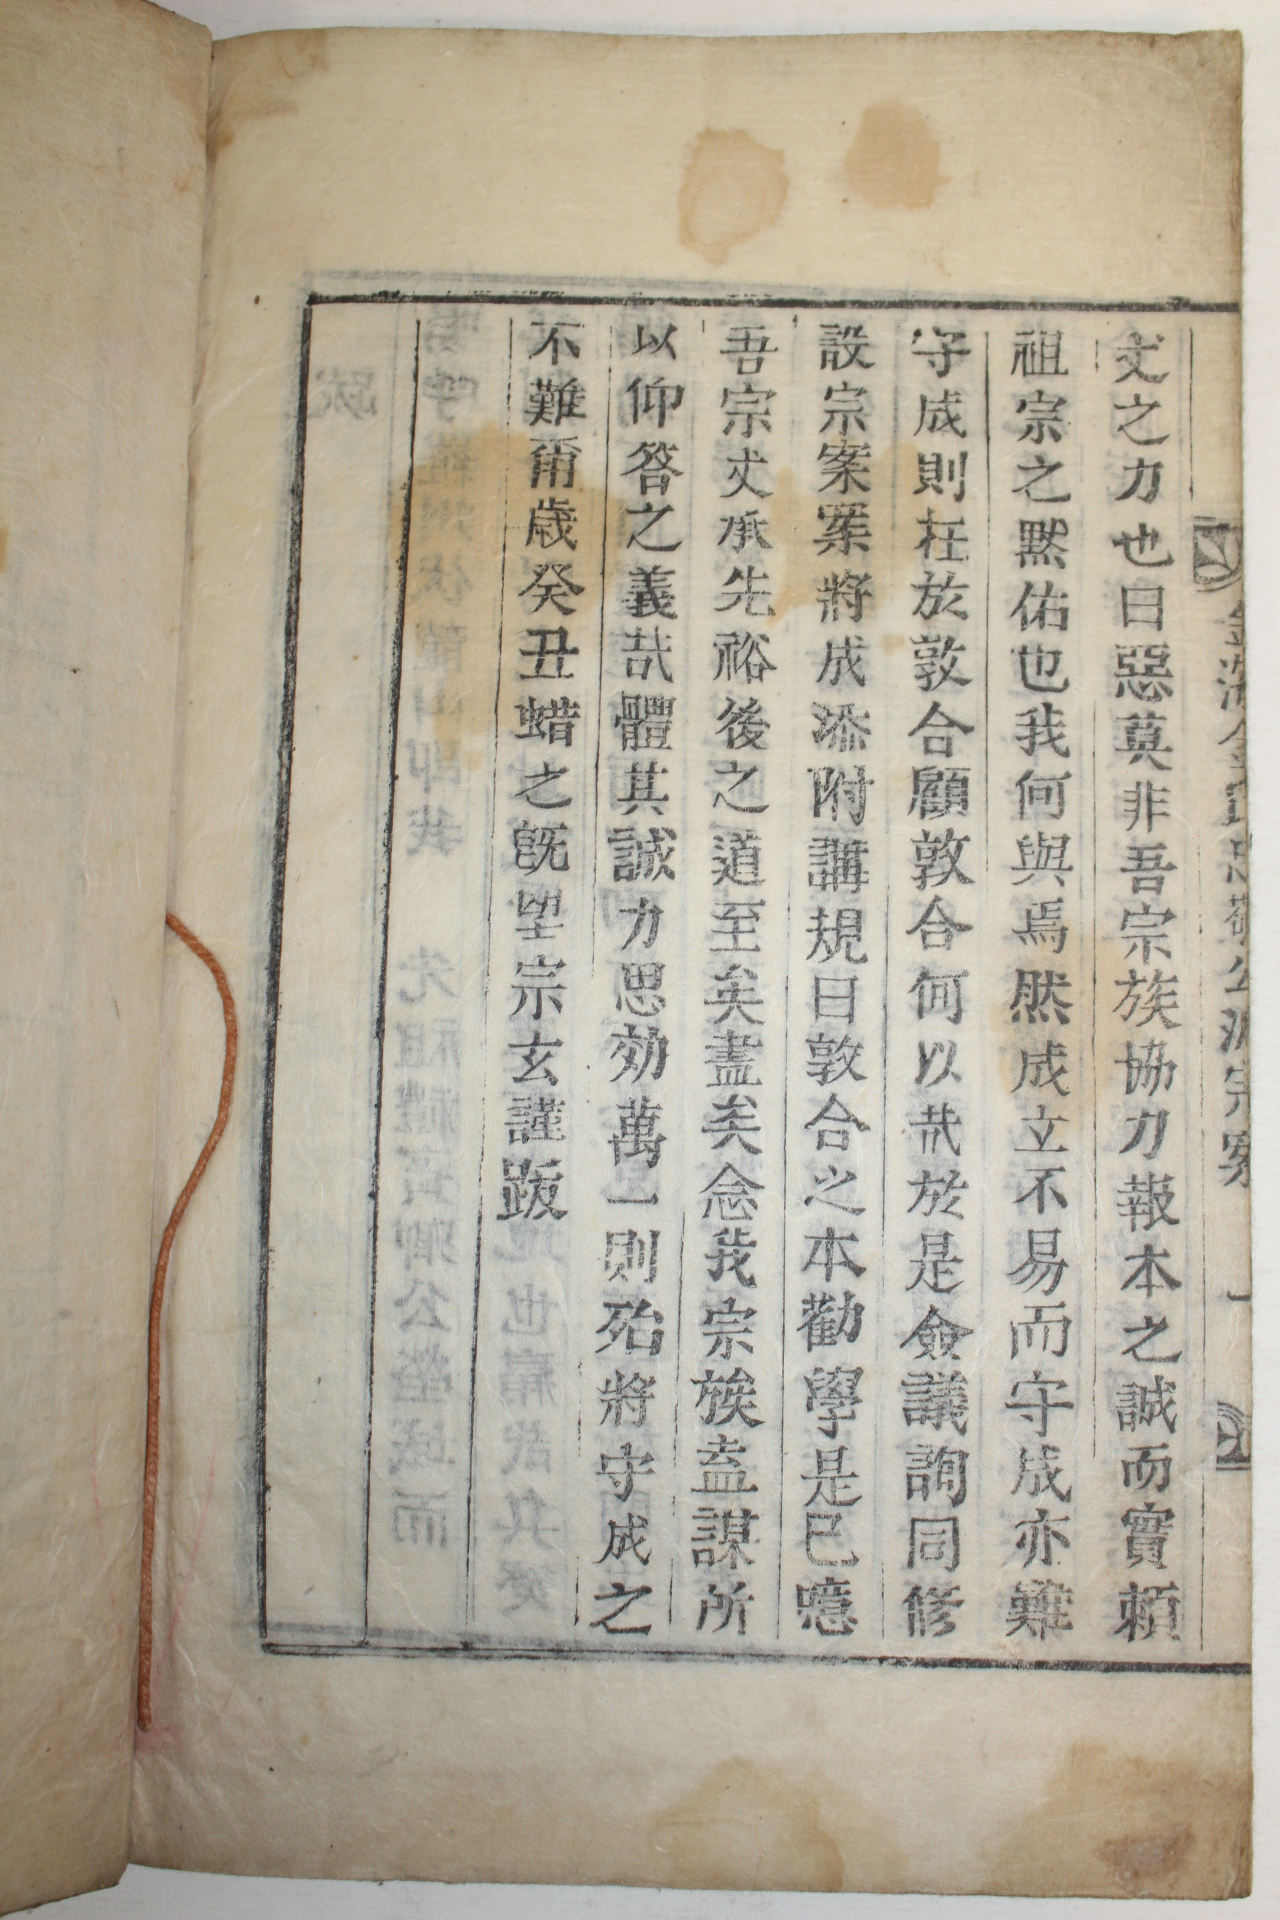 丈之力也曰惡莫非吾宗族協力報本之誠而實賴
祖宗之黙佑也我何與焉然成立不易而守成亦難
守成則在於敦合顧敦合何以哉於是僉議詢同修
設宗案案將成添附講規曰敦合之本勸學是已噫
吾宗丈承先裕後之道至矣盡矣念我宗族盍謀所
以仰答之義哉體其誠力思効萬一則殆將守成之
不難爾歲癸丑蜡之旣望宗玄謹跋
金海金氏忠敬公派宗案 一